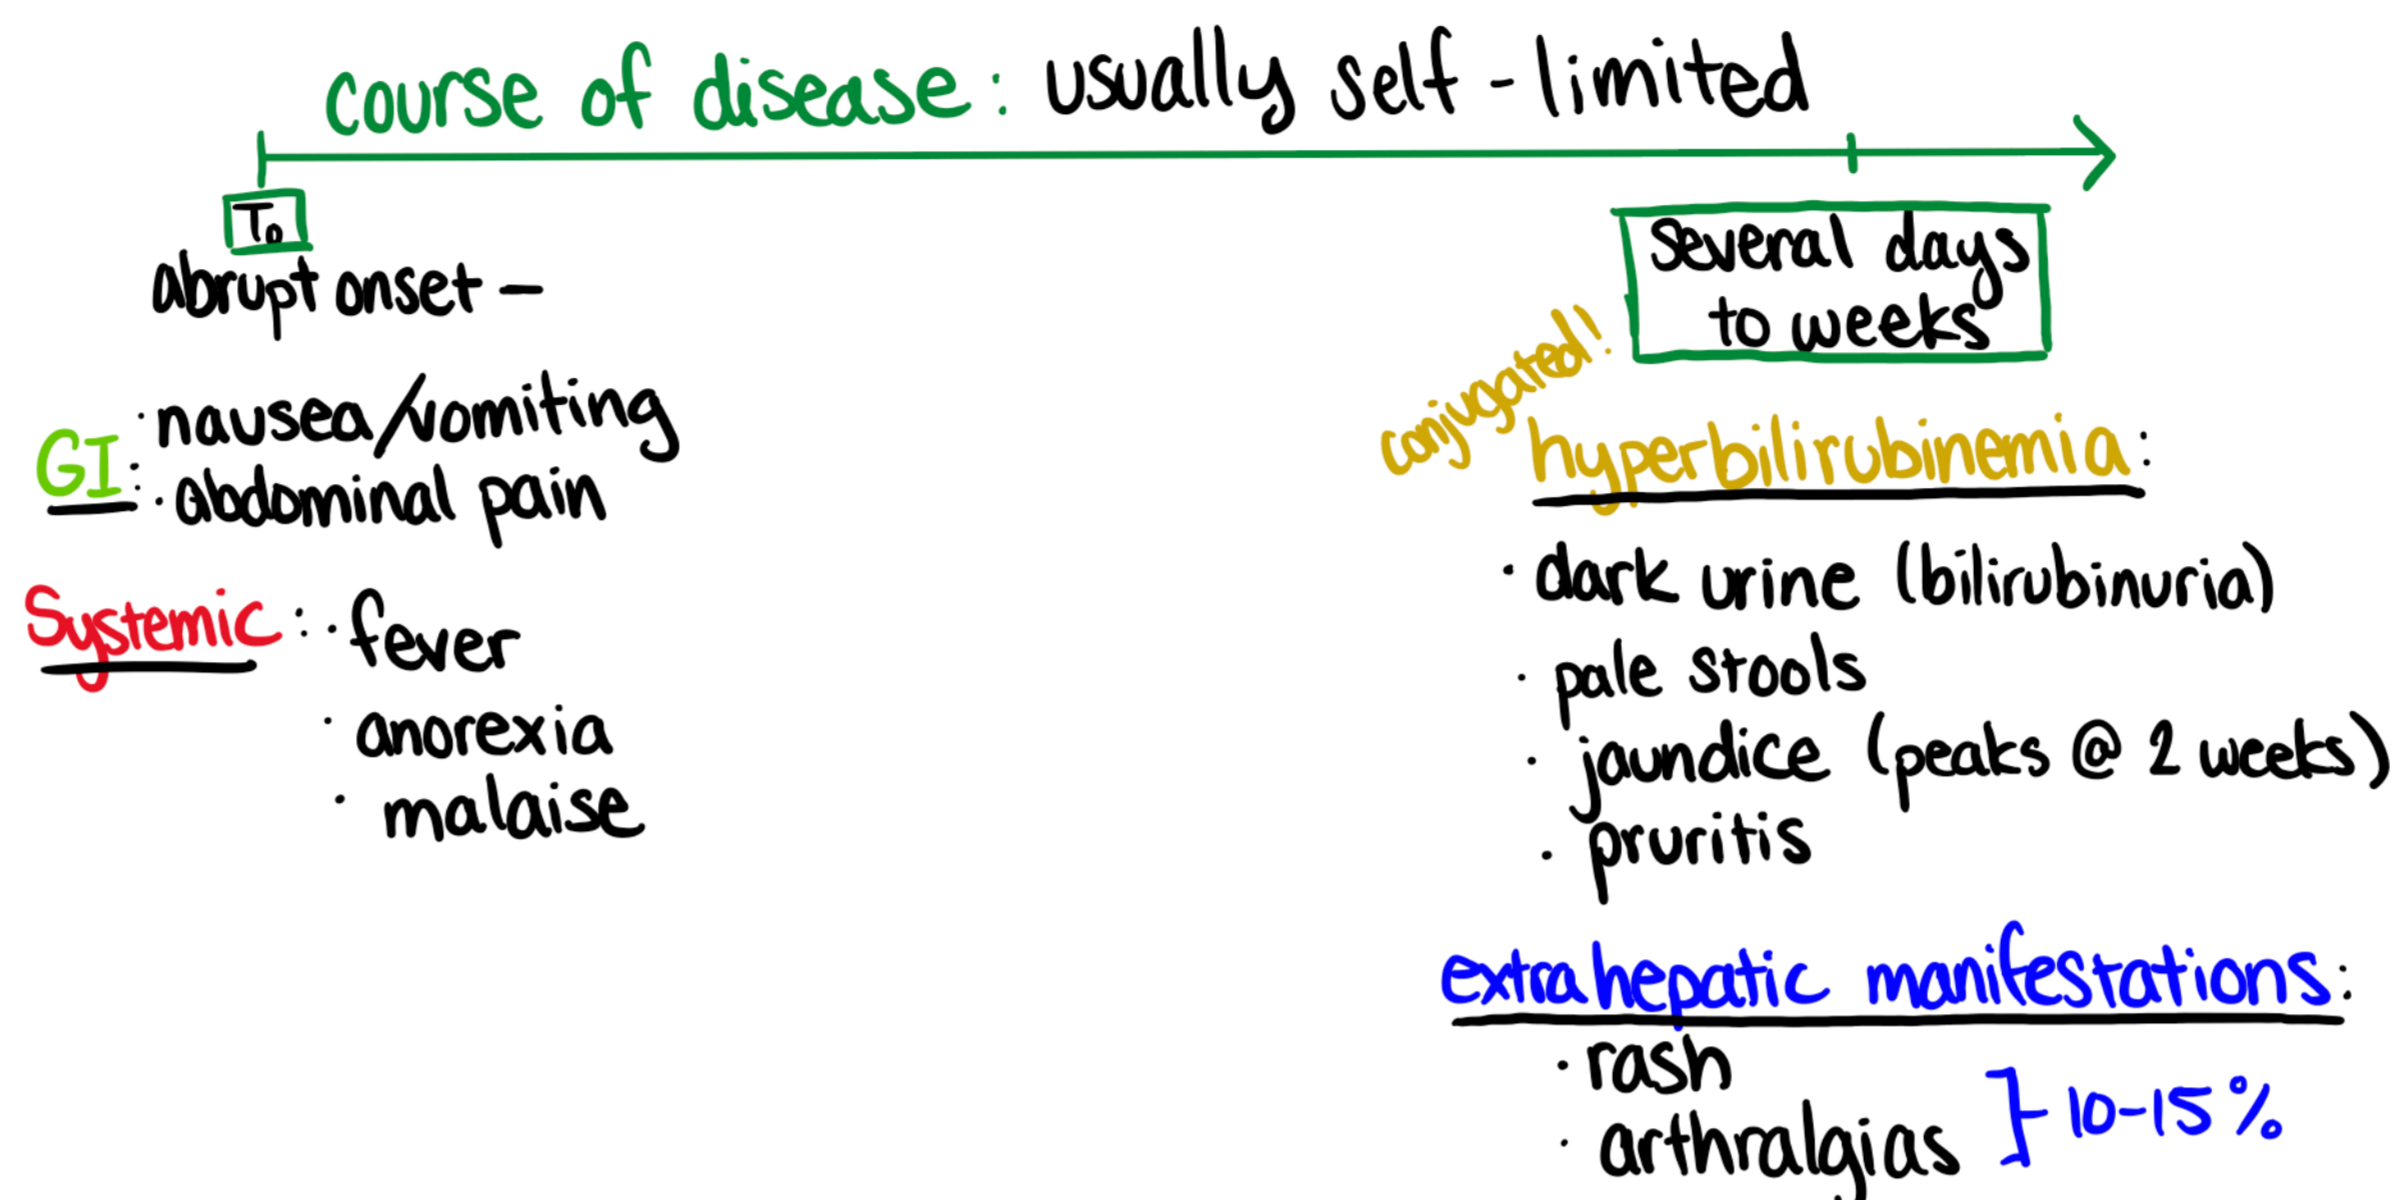 course of disease: usually self-limited
T₀
abrupt onset —
GI:
· nausea/vomiting
· abdominal pain
Systemic:
· fever
· anorexia
· malaise
several days
to weeks
conjugated!
hyperbilirubinemia:
· dark urine (bilirubinuria)
· pale stools
· jaundice (peaks @ 2 weeks)
· pruritis
extrahepatic manifestations:
· rash
· arthralgias
10-15%